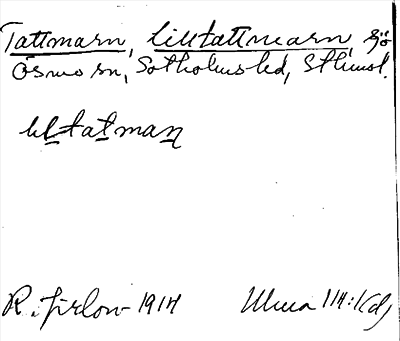 Tattmarn, Lilltattmarn, sjö
Ösmo sn, Sotholms hd, Sthmsl.
liltatman
R. Firlow 1917
114:1(d)